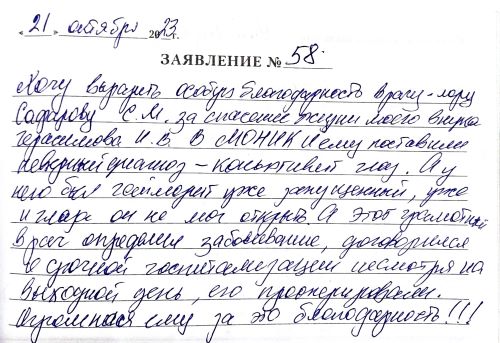 « 21 » октября 2023г.
ЗАЯВЛЕНИЕ № 58.
Хочу выразить особую благодарность врачу-лору
Сафарову С.М. за спасение жизни моего внука
Герасимова И.В. В МОНИКИ ему поставили
неверный диагноз – конъюктивит глаз. А у
него был гайморит уже запущенный, уже
и глаза он не мог открыть А этот грамотный
врач определил заболевание, договорился
о срочной госпитализации несмотря на
выходной день, его прооперировали.
Огромная ему за это благодарность!!!